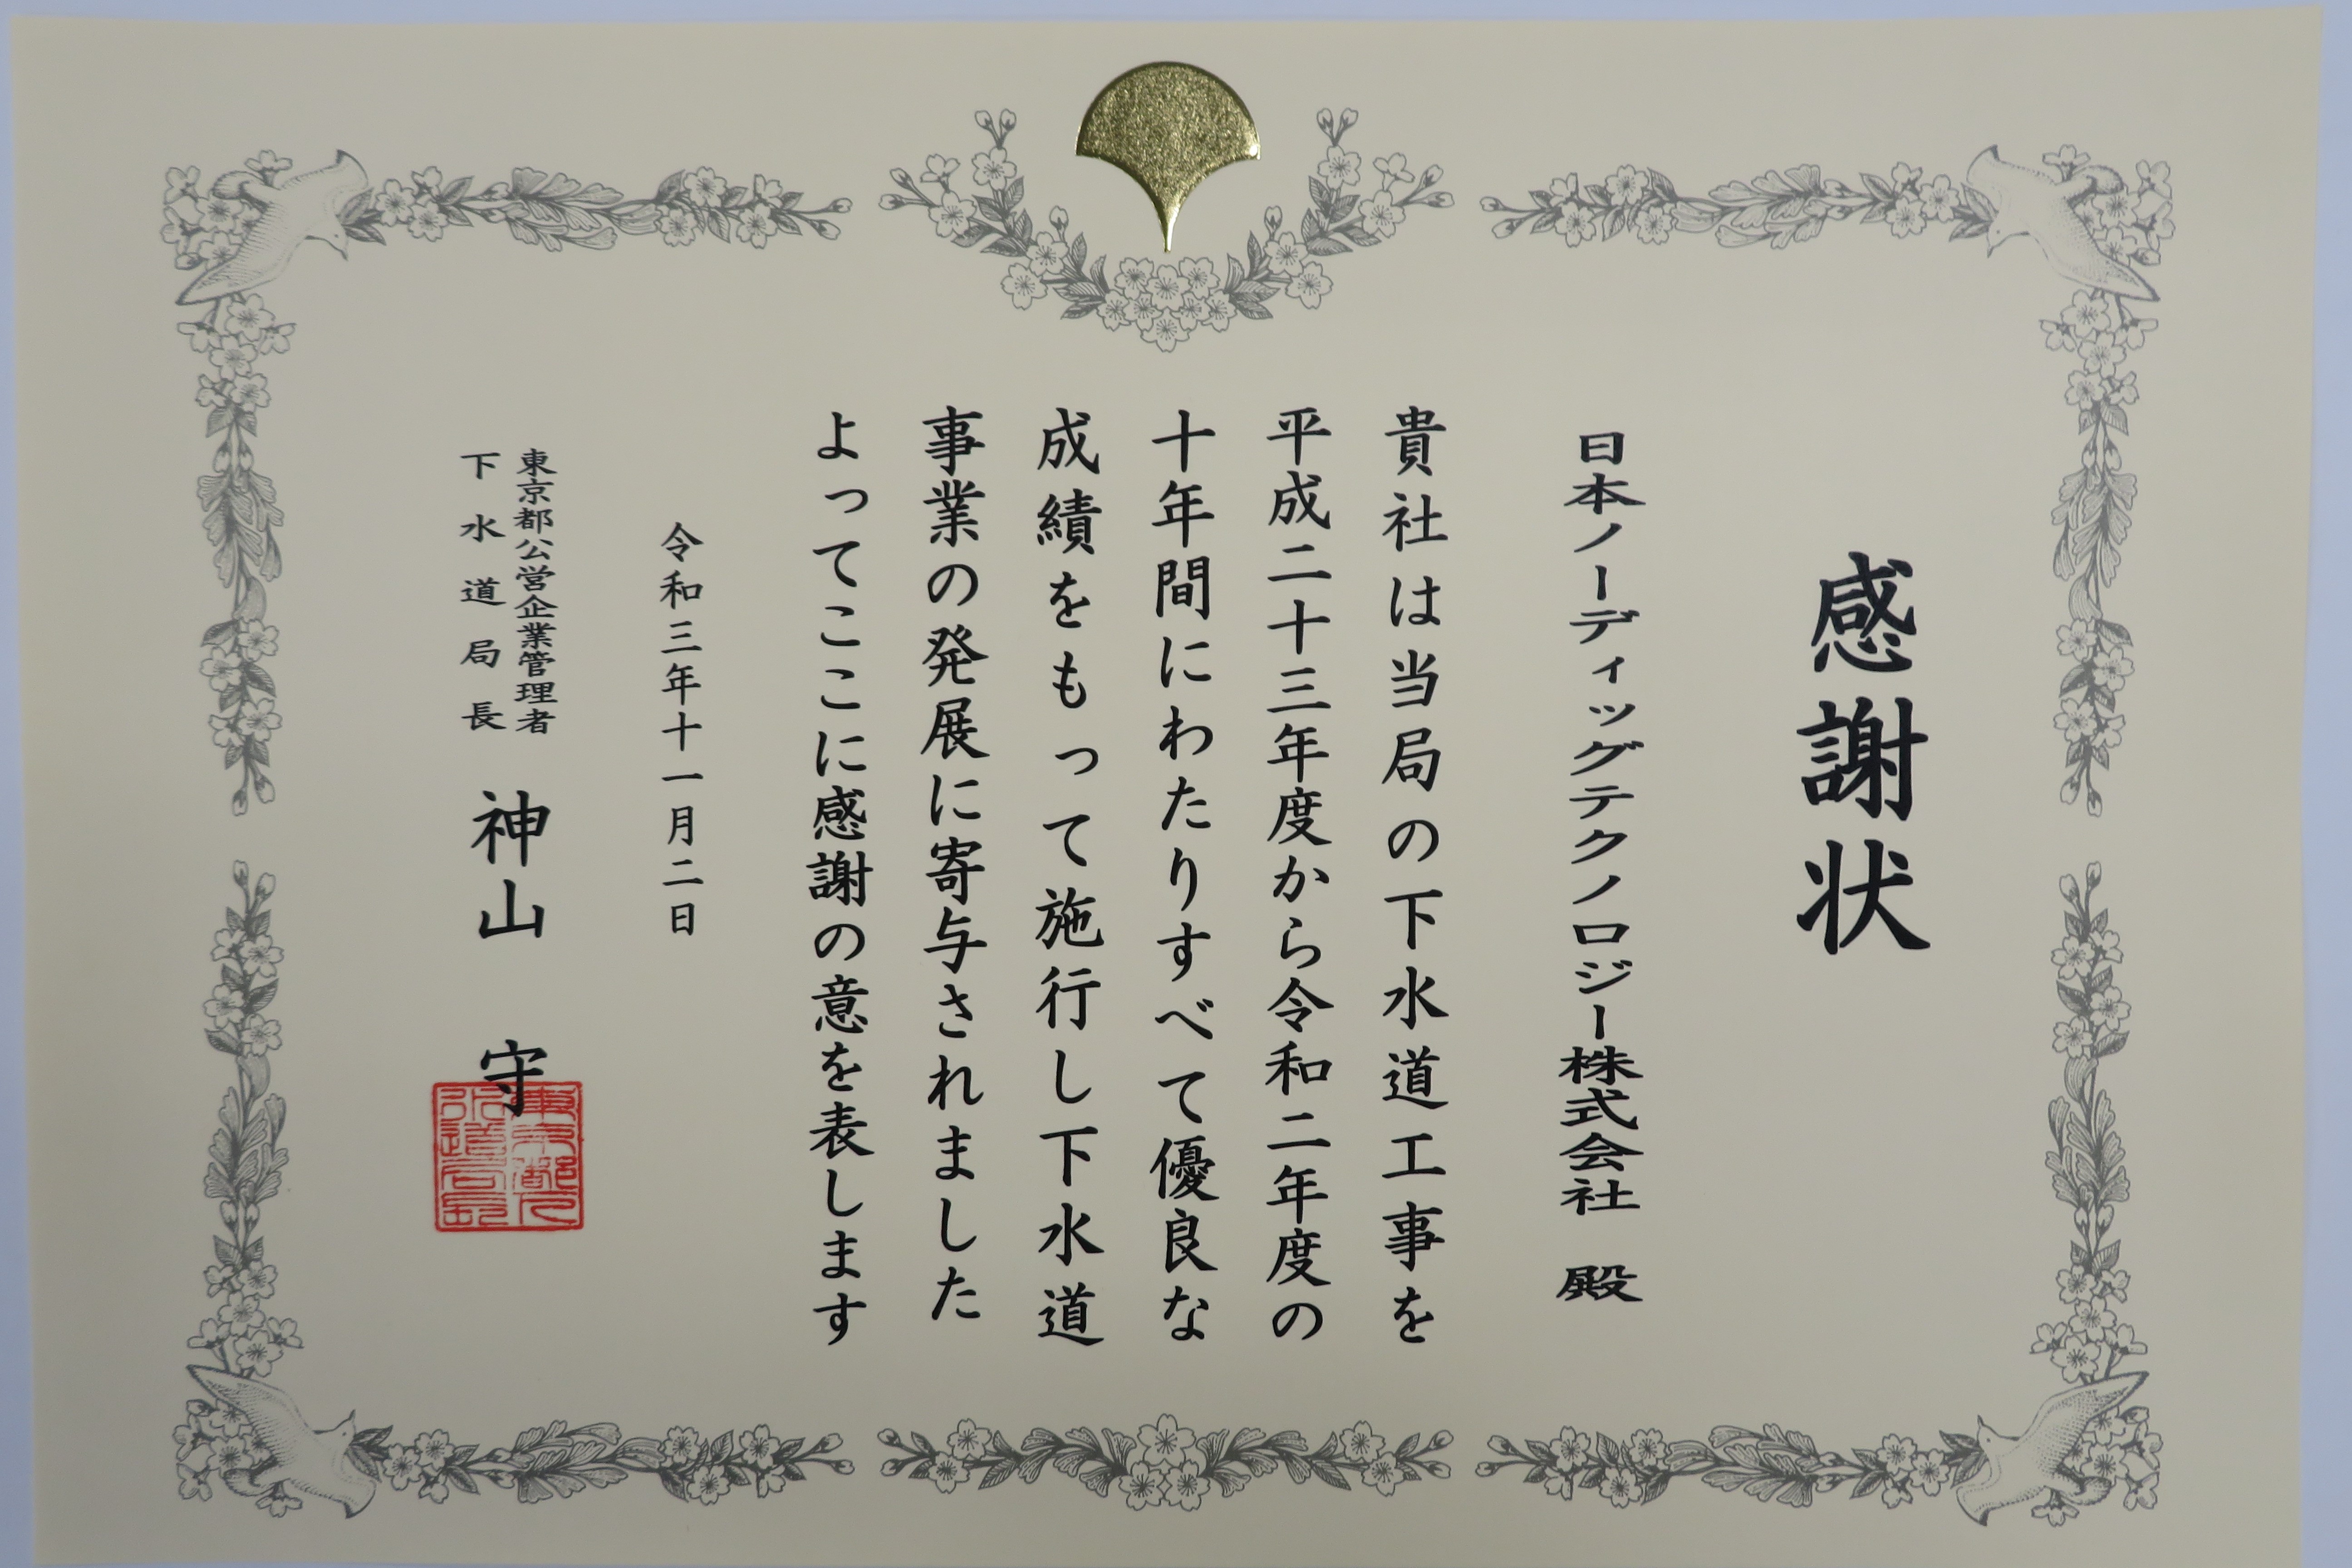 感謝状
日本ノーディッグテクノロジー株式会社 殿
貴社は当局の下水道工事を
平成二十三年度から令和二年度の
十年間にわたりすべて優良な
成績をもって施行し下水道
事業の発展に寄与されました
よってここに感謝の意を表します
令和三年十一月二日
東京都公営企業管理者
下水道局長
神山 守